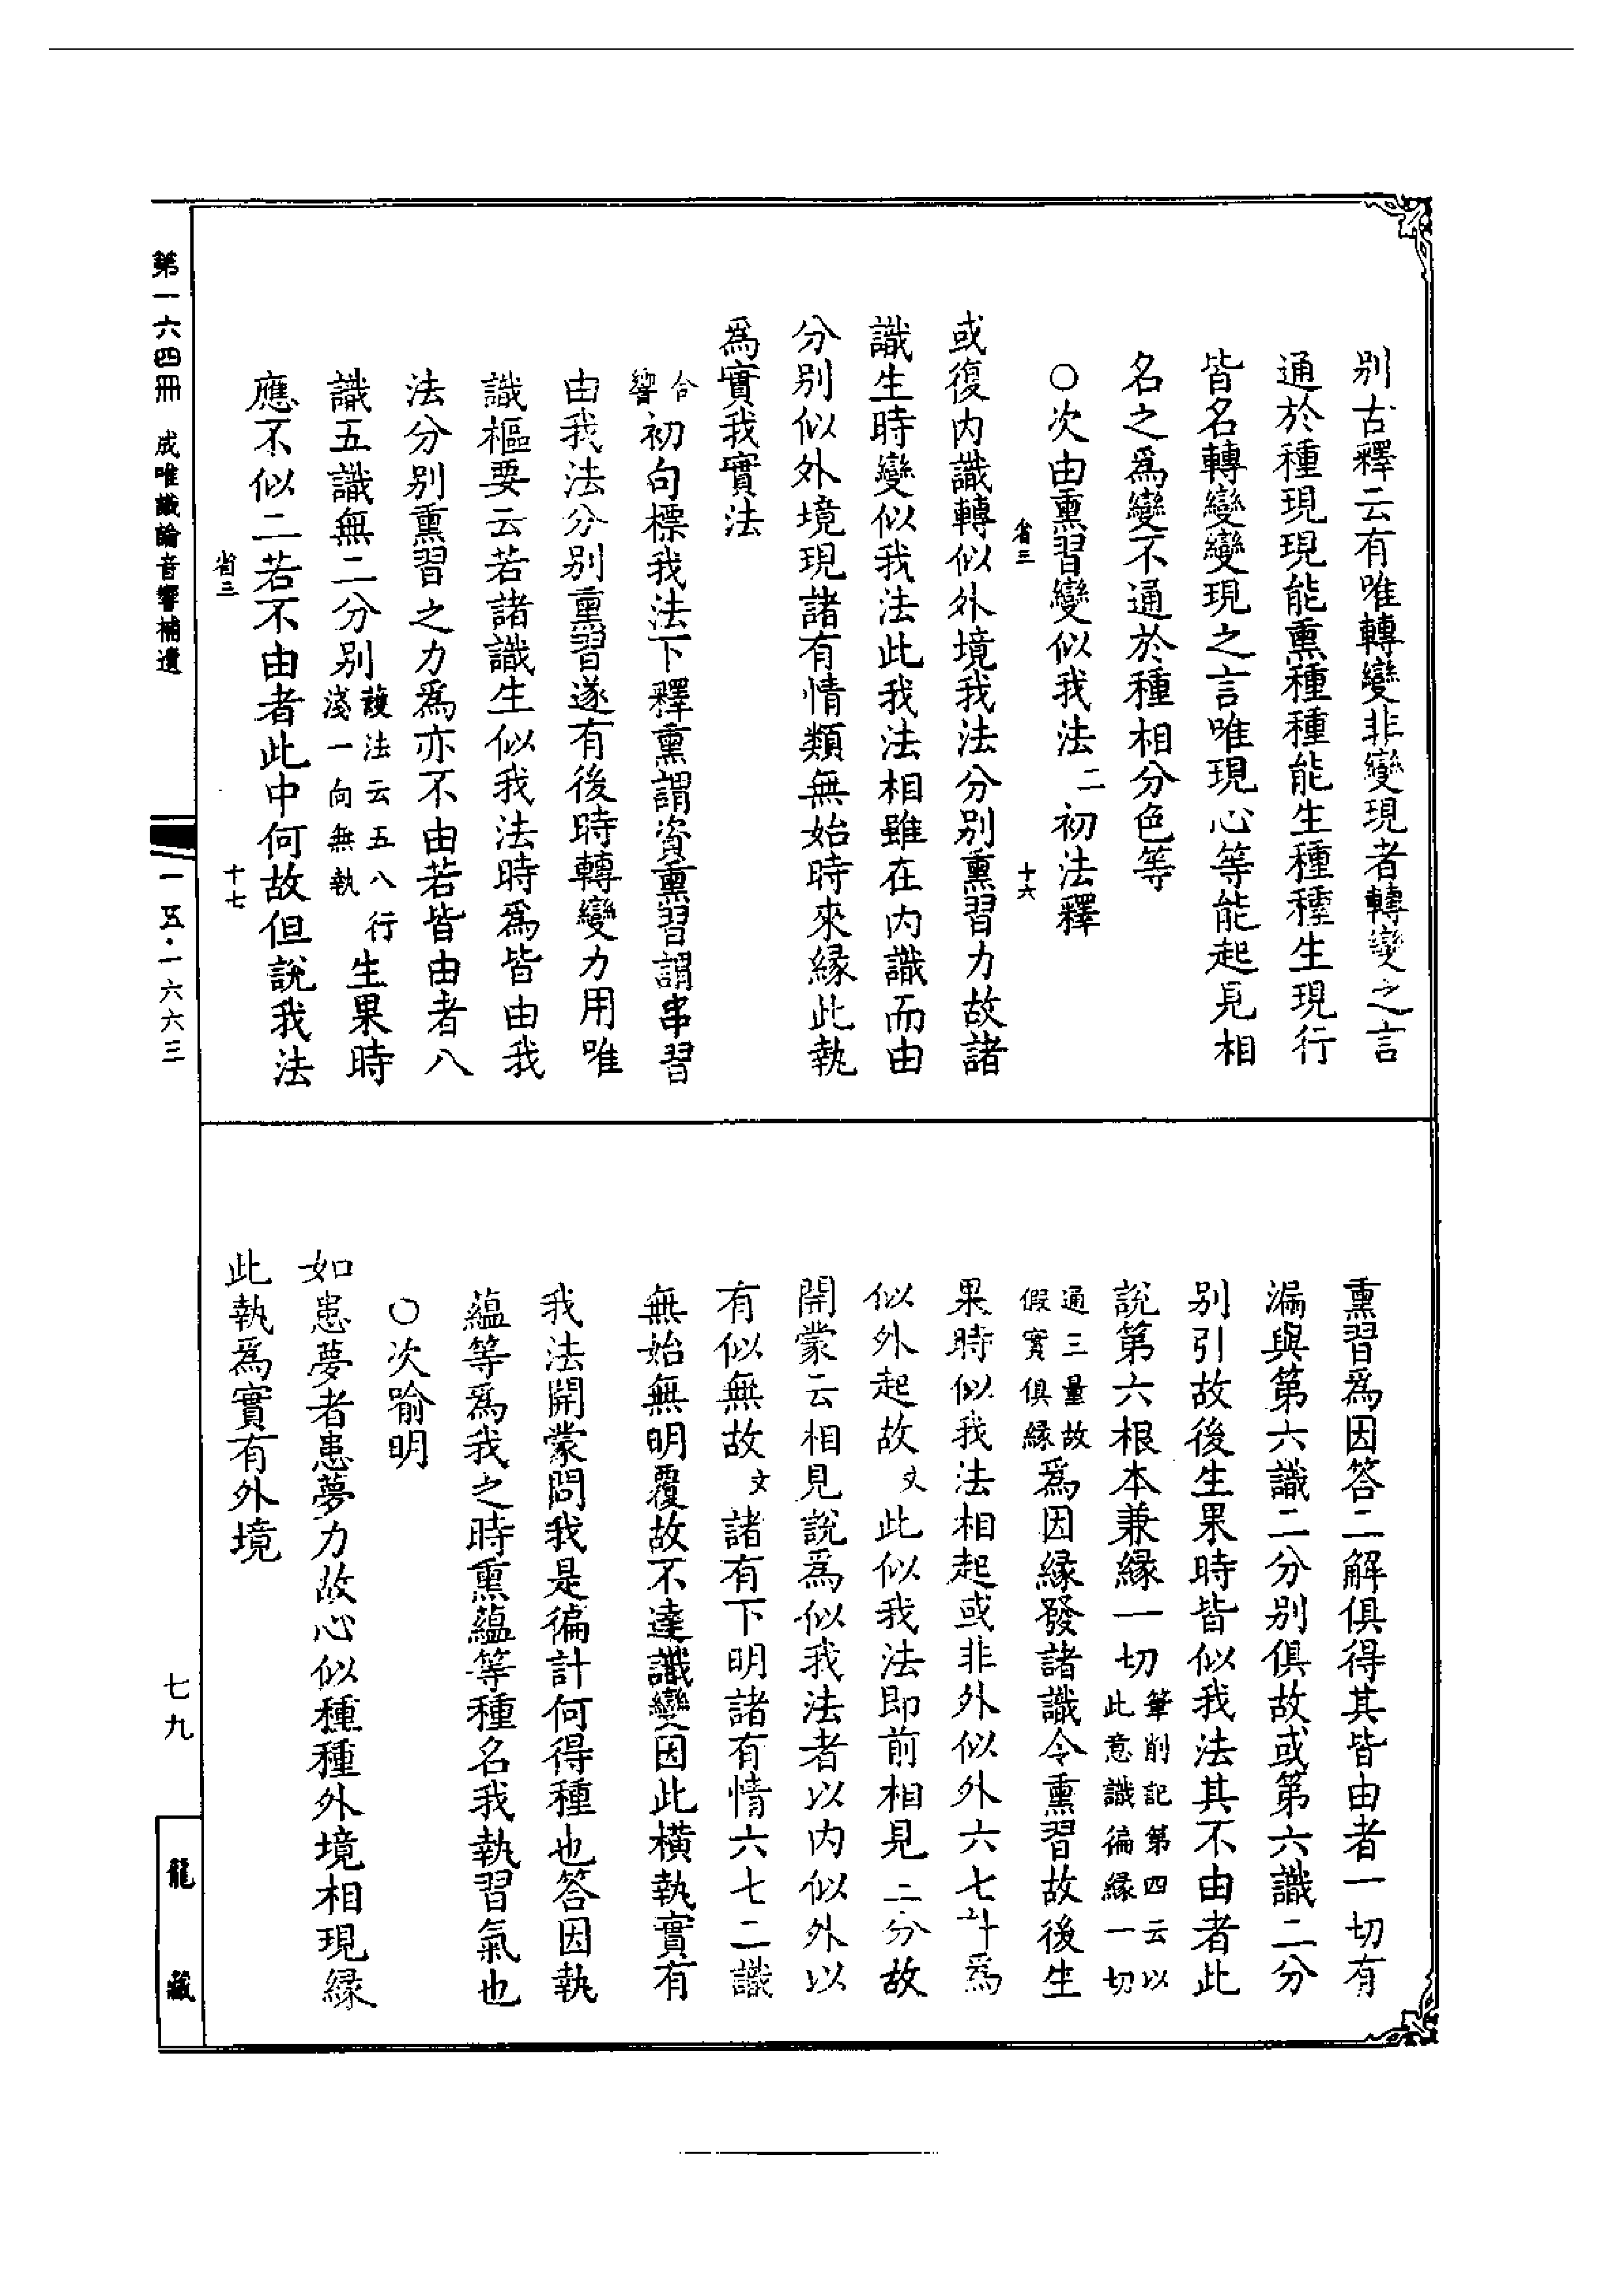 别古釋云有唯轉變非變現者轉變之言
通於種現現能熏種種能生種種生現行
皆名轉變變現之言唯現心等能起見相
名之爲變不通於種相分色等
○次由熏習變似我法二初法釋
省三 十六
或復内識轉似外境我法分别熏習力故諸
識生時變似我法此我法相雖在内識而由
分别似外境現諸有情類無始時來緣此執
爲實我實法
合響初句標我法下釋熏謂資熏習謂串習
由我法分别熏習遂有後時轉變力用唯
識樞要云若諸識生似我法時爲皆由我
法分别熏習之力爲亦不由若皆由者八
識五識無二分别護法云五八行淺一向無執生果時
應不似二若不由者此中何故但説我法
省三 十七
熏習爲因答二解俱得其皆由者一切有
漏與第六識二分别俱故或第六識二分
别引故後生果時皆似我法其不由者此
説第六根本兼緣一切筆削記第四云以此意識徧緣一切
通三量故假實俱緣爲因緣發諸識令熏習故後生
果時似我法相起或非外似外六七計爲
似外起故文此似我法即前相見二分故
開蒙云相見説爲似我法者以内似外以
有似無故文諸有下明諸有情六七二識
無始無明覆故不達識變因此横執實有
我法開蒙問我是徧計何得種也答因執
蘊等爲我之時熏蘊等種名我執習氣也
○次喻明
如患夢者患夢力故心似種種外境相現緣
此執爲實有外境
第一六四冊 成唯識論音響補遺
一五·一六六三
七九
龍藏